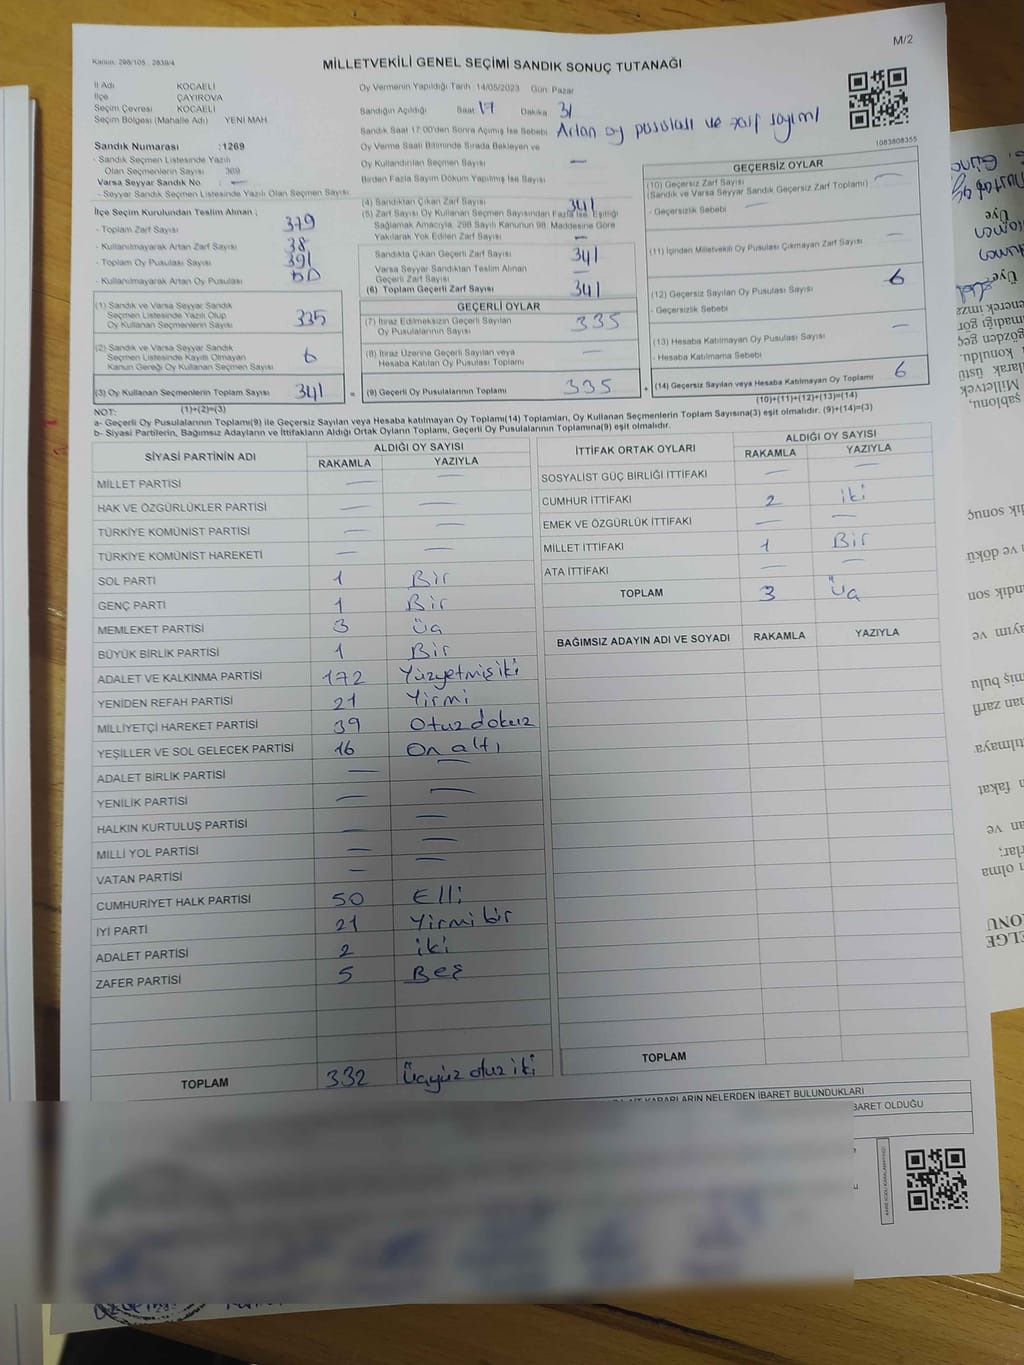 M/2
Kanun, 298/105 - 2839/4
MİLLETVEKİLİ GENEL SEÇİMİ SANDIK SONUÇ TUTANAĞI
İl Adı KOCAELİ
İlçe ÇAYIROVA
Seçim Çevresi KOCAELİ
Seçim Bölgesi (Mahalle Adı) YENİ MAH.
Oy Vermenin Yapıldığı Tarih :14/05/2023 Gün: Pazar
Sandığın Açıldığı Saat 17 Dakika 31
Sandık Saat 17.00'den Sonra Açılmış İse Sebebi Artan oy pusulası ve zarf sayımı
1083808355
Sandık Numarası :1269
- Sandık Seçmen Listesinde Yazılı
Olan Seçmenlerin Sayısı 369
Varsa Seyyar Sandık No : —
- Seyyar Sandık Seçmen Listesinde Yazılı Olan Seçmen Sayısı
Oy Verme Saati Bitiminde Sırada Bekleyen ve
Oy Kullandırılan Seçmen Sayısı —
Birden Fazla Sayım Döküm Yapılmış İse Sayısı
İlçe Seçim Kurulundan Teslim Alınan ;
- Toplam Zarf Sayısı 379
- Kullanılmayarak Artan Zarf Sayısı 38
- Toplam Oy Pusulası Sayısı 391
- Kullanılmayarak Artan Oy Pusulası
(1) Sandık ve Varsa Seyyar Sandık
Seçmen Listesinde Yazılı Olup
Oy Kullanan Seçmenlerin Sayısı 335
(2) Sandık ve Varsa Seyyar Sandık
Seçmen Listesinde Kayıtlı Olmayan
Kanun Gereği Oy Kullanan Seçmen Sayısı 6
(3) Oy Kullanan Seçmenlerin Toplam Sayısı 341
(1)+(2)=(3)
(4) Sandıktan Çıkan Zarf Sayısı 341
(5) Zarf Sayısı Oy Kullanan Seçmen Sayısından Fazla İse, Eşitliği
Sağlamak Amacıyla, 298 Sayılı Kanunun 98. Maddesine Göre
Yakılarak Yok Edilen Zarf Sayısı —
Sandıkta Çıkan Geçerli Zarf Sayısı 341
Varsa Seyyar Sandıktan Teslim Alınan
Geçerli Zarf Sayısı —
(6) Toplam Geçerli Zarf Sayısı 341
GEÇERLİ OYLAR
(7) İtiraz Edilmeksizin Geçerli Sayılan
Oy Pusulalarının Sayısı 335
(8) İtiraz Üzerine Geçerli Sayılan veya
Hesaba Katılan Oy Pusulası Toplamı —
(9) Geçerli Oy Pusulalarının Toplamı 335
GEÇERSİZ OYLAR
(10) Geçersiz Zarf Sayısı —
(Sandık ve Varsa Seyyar Sandık Geçersiz Zarf Toplamı)
- Geçersizlik Sebebi —
(11) İçinden Milletvekili Oy Pusulası Çıkmayan Zarf Sayısı —
(12) Geçersiz Sayılan Oy Pusulası Sayısı 6
- Geçersizlik Sebebi
(13) Hesaba Katılmayan Oy Pusulası Sayısı —
- Hesaba Katılmama Sebebi
(14) Geçersiz Sayılan veya Hesaba Katılmayan Oy Toplamı 6
(10)+(11)+(12)+(13)=(14)
NOT:
a- Geçerli Oy Pusulalarının Toplamı(9) ile Geçersiz Sayılan veya Hesaba katılmayan Oy Toplamı(14) Toplamları, Oy Kullanan Seçmenlerin Toplam Sayısına(3) eşit olmalıdır. (9)+(14)=(3)
b- Siyasi Partilerin, Bağımsız Adayların ve İttifakların Aldığı Ortak Oyların Toplamı, Geçerli Oy Pusulalarının Toplamına(9) eşit olmalıdır.
SİYASİ PARTİNİN ADI ALDIĞI OY SAYISI
RAKAMLA YAZIYLA
MİLLET PARTİSİ — —
HAK VE ÖZGÜRLÜKLER PARTİSİ — —
TÜRKİYE KOMÜNİST PARTİSİ — —
TÜRKİYE KOMÜNİST HAREKETİ — —
SOL PARTİ 1 Bir
GENÇ PARTİ 1 Bir
MEMLEKET PARTİSİ 3 üç
BÜYÜK BİRLİK PARTİSİ 1 Bir
ADALET VE KALKINMA PARTİSİ 172 Yüzyetmişiki
YENİDEN REFAH PARTİSİ 21 Yirmi
MİLLİYETÇİ HAREKET PARTİSİ 39 Otuz dokuz
YEŞİLLER VE SOL GELECEK PARTİSİ 16 On altı
ADALET BİRLİK PARTİSİ — —
YENİLİK PARTİSİ — —
HALKIN KURTULUŞ PARTİSİ — —
MİLLİ YOL PARTİSİ — —
VATAN PARTİSİ — —
CUMHURİYET HALK PARTİSİ 50 Elli
İYİ PARTİ 21 Yirmi bir
ADALET PARTİSİ 2 iki
ZAFER PARTİSİ 5 Beş
TOPLAM 332 Üçyüz otuz iki
İTTİFAK ORTAK OYLARI ALDIĞI OY SAYISI
RAKAMLA YAZIYLA
SOSYALİST GÜÇ BİRLİĞİ İTTİFAKI — —
CUMHUR İTTİFAKI 2 iki
EMEK VE ÖZGÜRLÜK İTTİFAKI — —
MİLLET İTTİFAKI 1 Bir
ATA İTTİFAKI — —
TOPLAM 3 Üç
BAĞIMSIZ ADAYIN ADI VE SOYADI RAKAMLA YAZIYLA
TOPLAM
KARARLARIN NELERDEN İBARET BULUNDUKLARI
BARET OLDUĞU